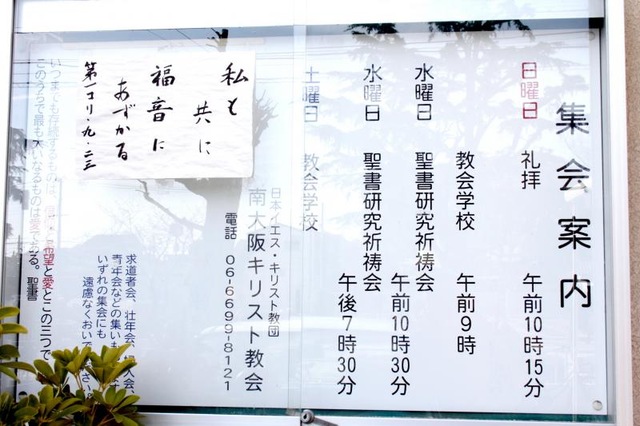 集会案内
日曜日 礼拝 午前10時15分
教会学校 午前9時
水曜日 聖書研究祈祷会 午前10時30分
水曜日 聖書研究祈祷会 午後7時30分
土曜日 教会学校
日本イエス・キリスト教団
南大阪キリスト教会
電話 06-6699-8121
求道者会、壮年会、婦人会、
青年会などの集いも
いずれの集会にも
遠慮なくおいで
私も
共に
福音に
あずかる
第一コリ・九・二三
いつまでも存続するものは、信仰と希望と愛とこの三つで
このうちで最も大いなるものは愛である。 聖書